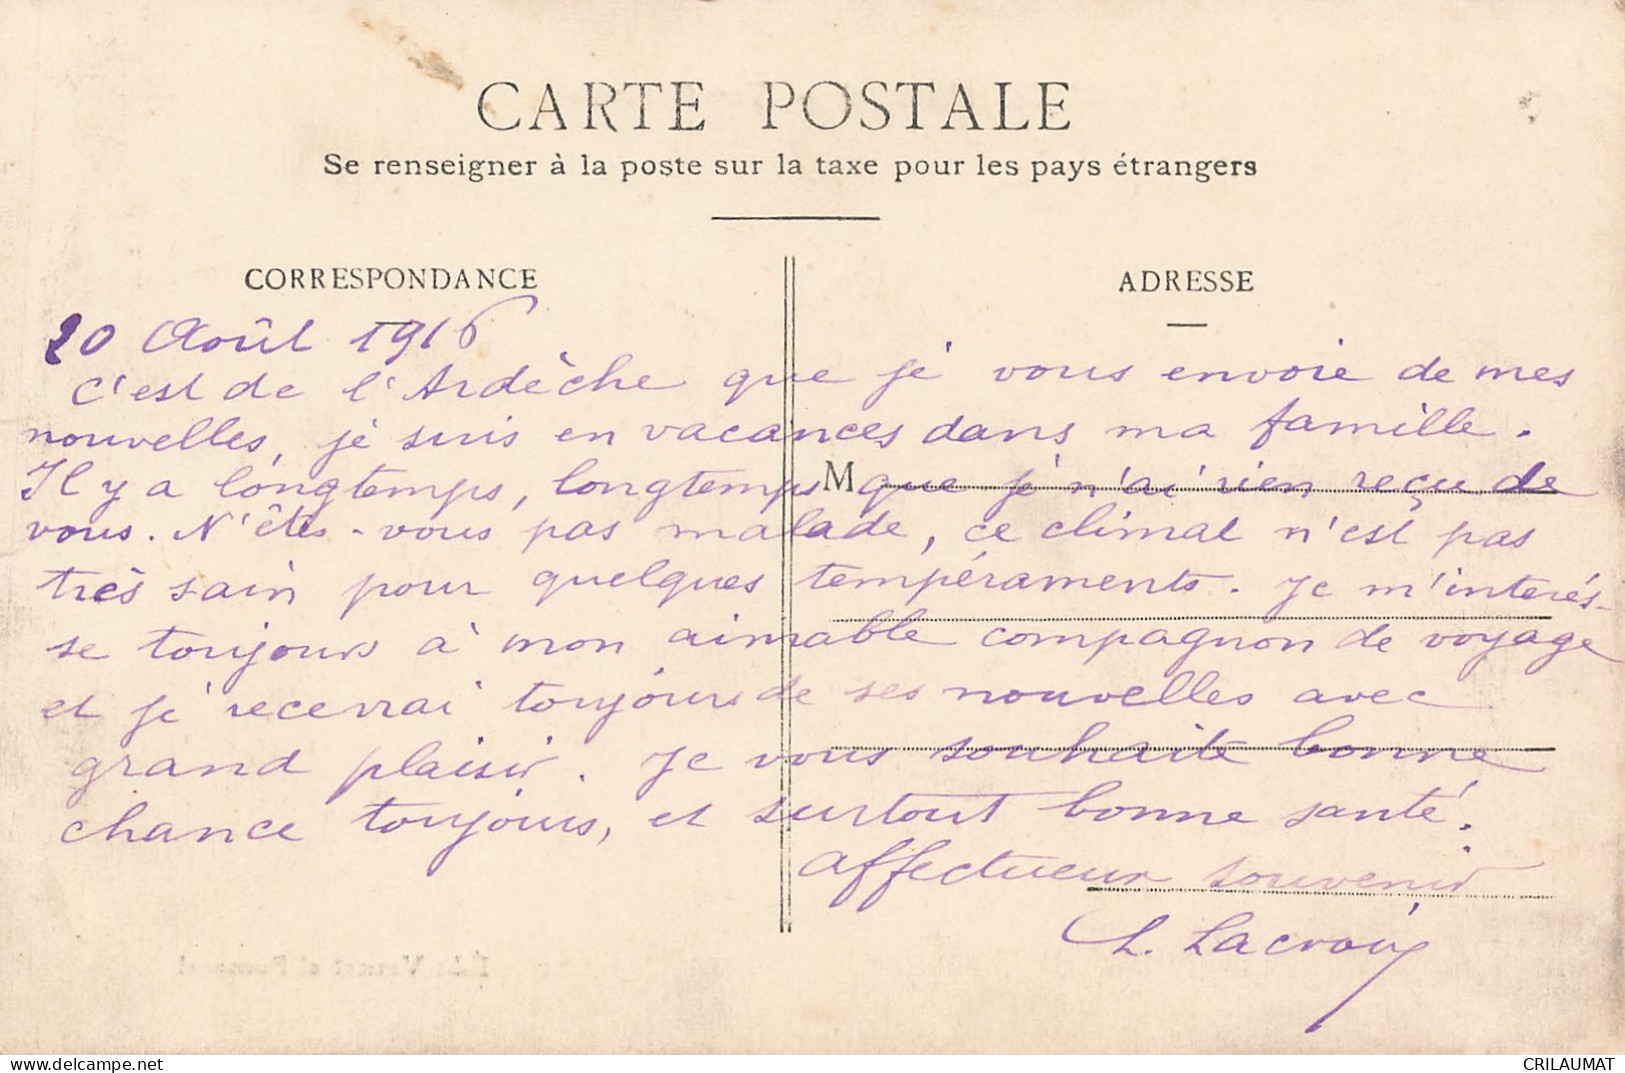 CARTE POSTALE
Se renseigner à la poste sur la taxe pour les pays étrangers
CORRESPONDANCE
ADRESSE
20 Août 1916
C'est de l'Ardèche que je vous envoie de mes
nouvelles, je suis en vacances dans ma famille.
Il y a longtemps, longtemps M que je n'ai rien reçu de
vous. N'êtes-vous pas malade, ce climat n'est pas
très sain pour quelques tempéraments. Je m'intérés-
se toujours à mon aimable compagnon de voyage
et je recevrai toujours de ses nouvelles avec
grand plaisir. Je vous souhaite bonne
chance toujours, et surtout bonne santé.
affectueux souvenir
L. Lacroix
delcampe.net
CRILAUMAT